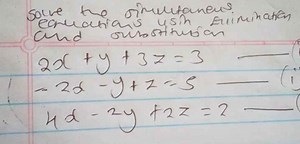 Solve the simultaneous
equations usin Elimination
and substitution
2x + y + 3z = 3 — (i
- 2x - y + z = 5 — (i
4x - 2y + 2z = 2 — (